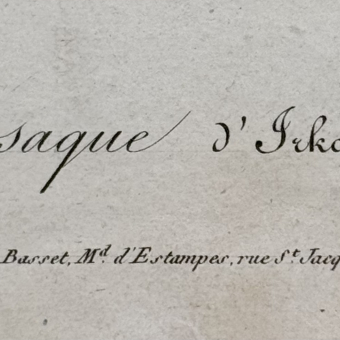 saque d'Irko
Basset, Md. d'Estampes, rue St. Jacq